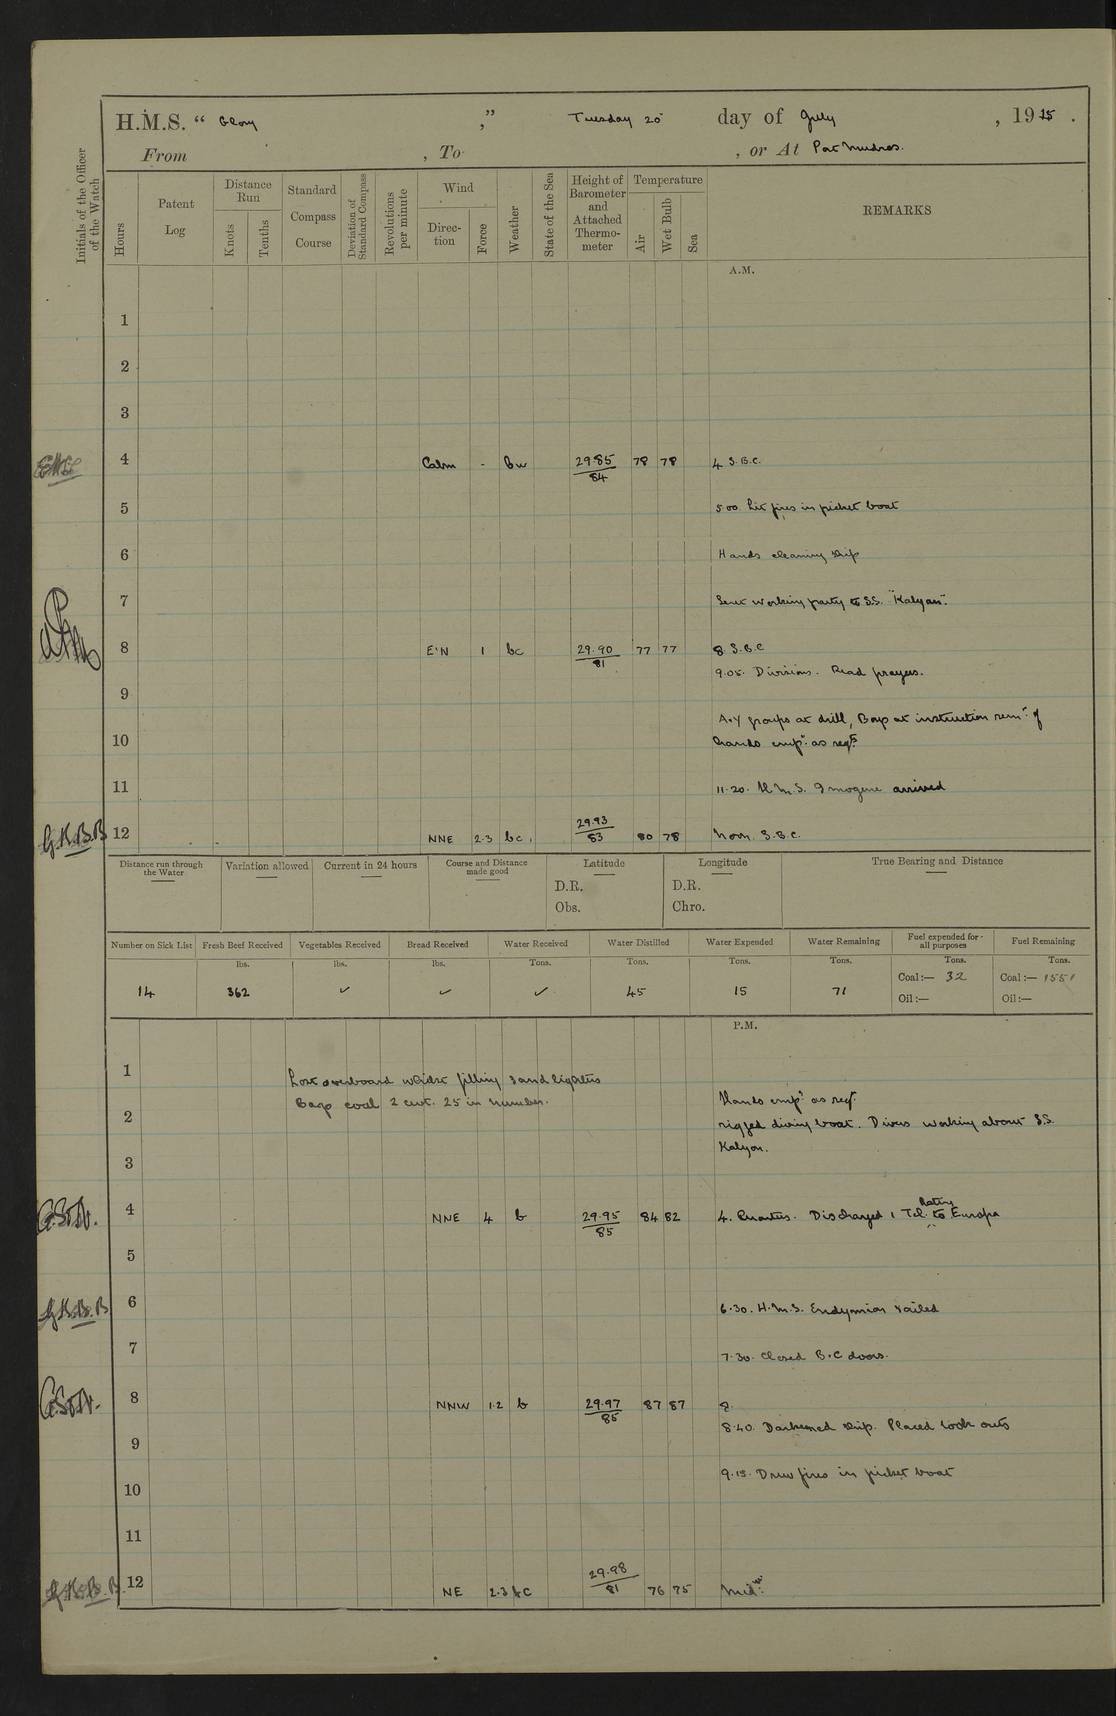 H.M.S. “ Glory ,” Tuesday 20 day of July , 1915 .
From , To , or At Port Mudros.
Initials of the Officer of the Watch
Hours
Patent Log
Distance Run
Knots
Tenths
Standard Compass Course
Deviation of Standard Compass
Revolutions per minute
Wind
Direction
Force
Weather
State of the Sea
Height of Barometer and Attached Thermometer
Temperature
Air
Wet Bulb
Sea
REMARKS
A.M.
1
2
3
4 Calm - bw 29.85/84 78 78 4 S.B.C.
5 5.00. Lit fires in picket boat
6 Hands cleaning ship
7 Sent working party to S.S. "Kalyan".
8 E'N 1 bc 29.90/81 77 77 8. S.B.C
9.05. Divisions. Read prayers.
9
A.Y groups at drill, Boys at instruction remr of
10 hands empd as reqd
11 11.20. H.M.S. Imogene arrived
G.K.B.B 12 NNE 2.3 bc, 29.93/83 80 78 Noon. S.B.C.
Distance run through the Water
Variation allowed
Current in 24 hours
Course and Distance made good
Latitude
D.R.
Obs.
Longitude
D.R.
Chro.
True Bearing and Distance
Number on Sick List
Fresh Beef Received
Vegetables Received
Bread Received
Water Received
Water Distilled
Water Expended
Water Remaining
Fuel expended for all purposes
Fuel Remaining
lbs. lbs. lbs. Tons. Tons. Tons. Tons. Tons. Tons.
14 362 ✓ ✓ ✓ 45 15 71 Coal:— 32 Coal:— 1551
Oil:— Oil:—
P.M.
1
Lost overboard whilst filling sand lighters
Bags coal 2 cwt. 25 in number.
Hands empd as reqd
2 rigged diving boat. Divers working about S.S.
Kalyan.
3
4 NNE 4 b 29.95/85 84 82 4. Quarters. Discharged 1 Tel. rating to Europa
5
G.K.B.B 6 6.30. H.M.S. Endymion sailed
7 7.30. Closed B.C doors.
8 NNW 1.2 b 29.97/85 87 87 8.
8.40. Darkened ship. Placed look outs
9
9.15. Drew fires in picket boat
10
11
G.K.B.B. 12 NE 2.3 bc 29.98/81 76 75 Midt